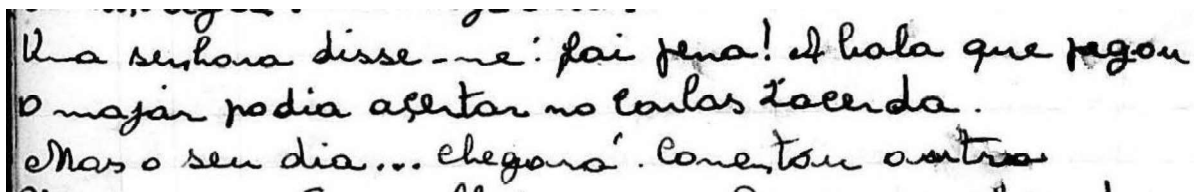 Uma senhora disse-me: foi pena! A bala que pegou
O major podia açertar no Carlos Lacerda.
Mas o seu dia... chegará. Comentou outra